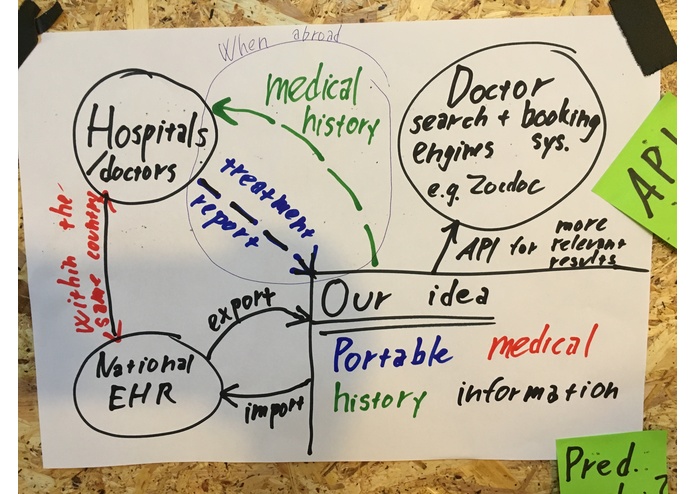 When abroad
medical
history
Hospitals
/doctors
treatment
report
Doctor
search + booking
engines sys.
e.g. Zocdoc
API
within the
same country
API for more
relevant
results
National
EHR
export
import
Our idea
Portable medical
history information
Pred.